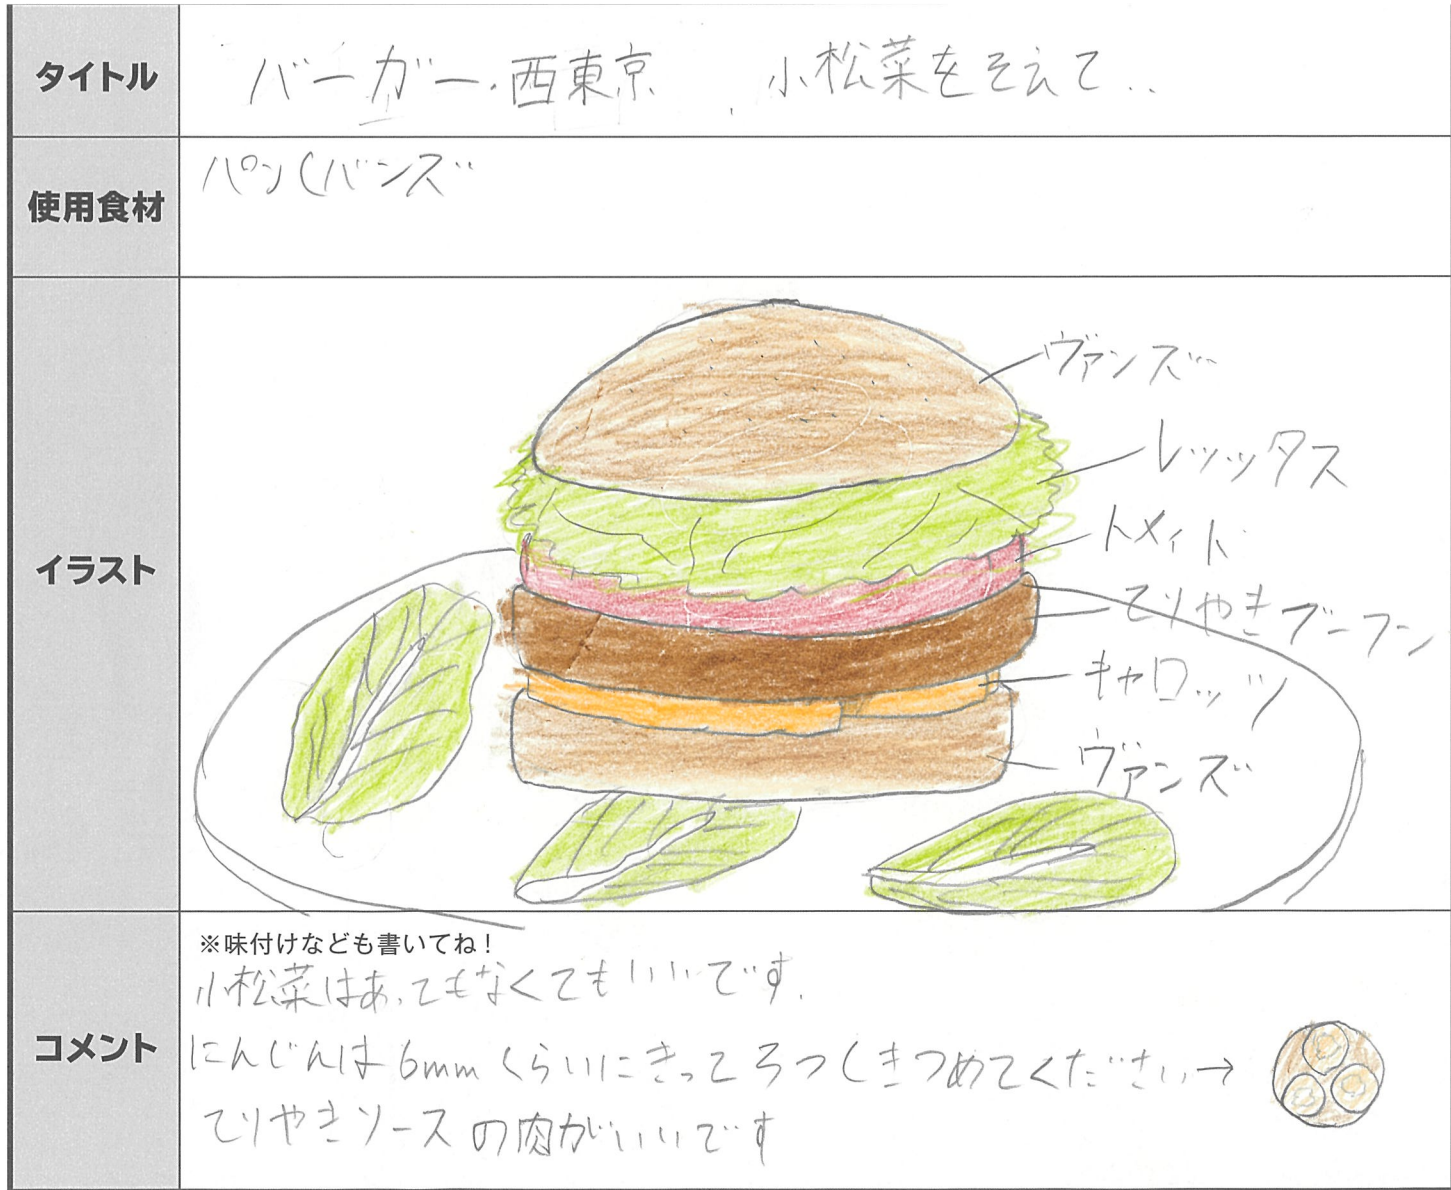 タイトル
バーガー・西東京 小松菜をそえて..
使用食材
パン(バンズ
イラスト
ヴァンズ
レッッタス
トメィト
てりやきブーフン
キャロッツ
ヴァンズ
コメント
※味付けなども書いてね!
小松菜はあってもなくてもいいです.
にんじんは6mmくらいにきって3つしきつめてください→
てりやきソースの肉がいいです